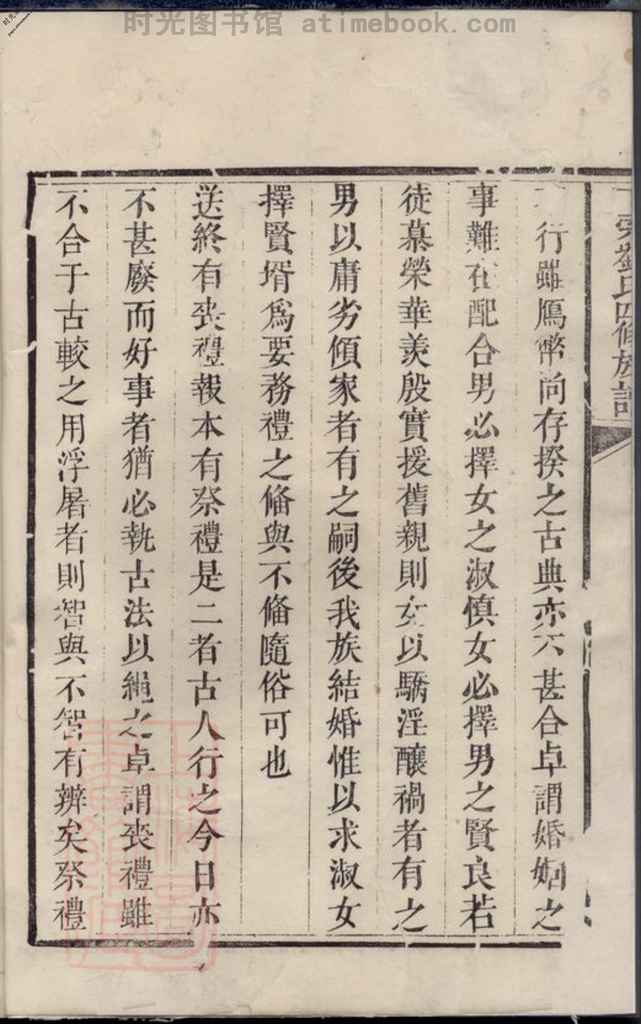 时光图书馆 atimebook.com
劉氏四修族譜
行雖鴈幣尚存揆之古典亦不甚合卓謂婚姻之
事難在配合男必擇女之淑慎女必擇男之賢良若
徒慕榮華羨殷實援舊親則女以驕淫釀禍者有之
男以庸劣傾家者有之嗣後我族結婚惟以求淑女
擇賢壻為要務禮之俻與不俻隨俗可也
送終有喪禮報本有祭禮是二者古人行之今日亦
不甚廢而好事者猶必執古法以繩之卓謂喪禮雖
不合于古較之用浮屠者則智與不智有辨矣祭禮